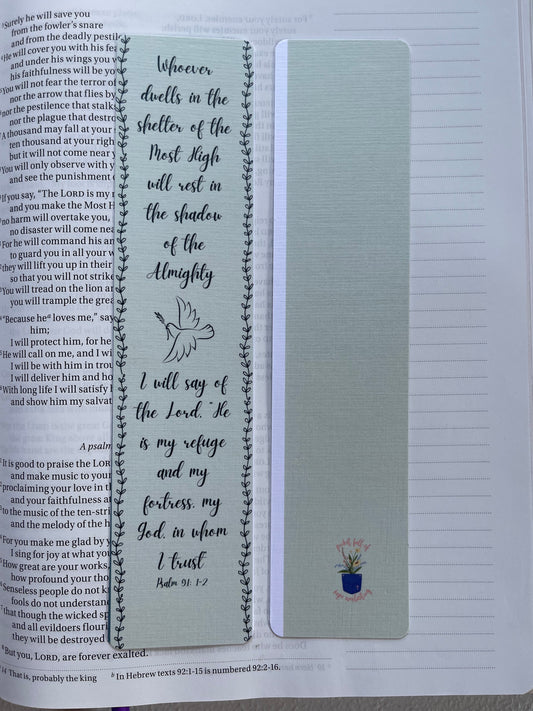 Surely he will save you
from the fowler's snare
and from the deadly pestile
He will cover you with his fea
and under his wings you w
his faithfulness will be yo
You will not fear the terror of
nor the arrow that flies by
nor the pestilence that stalks
nor the plague that destro
A thousand may fall at your
ten thousand at your righ
but it will not come near
You will only observe with y
and see the punishment
If you say, “The LORD is my
and you make the Most H
no harm will overtake you,
no disaster will come nea
For he will command his an
to guard you in all your w
they will lift you up in their
so that you will not strike
You will tread on the lion a
you will trample the grea
“Because heᵃ loves me,” say
him;
I will protect him, for he
He will call on me, and I wi
I will be with him in trou
I will deliver him and ho
With long life I will satisfy
and show him my salvat
A psalm
It is good to praise the LOR
and make music to your
proclaiming your love in th
and your faithfulness at
to the music of the ten-stri
and the melody of the h
For you make me glad by y
I sing for joy at what you
How great are your works,
how profound your tho
Senseless people do not k
fools do not understand
that though the wicked sp
and all evildoers flouri
they will be destroyed
But you, LORD, are forever exalted.
14 That is, probably the king ᵇ In Hebrew texts 92:1-15 is numbered 92:2-16.
Whoever
dwells in the
shelter of the
Most High
will rest in
the shadow
of the
Almighty
I will say of
the Lord, "He
is my refuge
and my
fortress, my
God, in whom
I trust
Psalm 91: 1-2